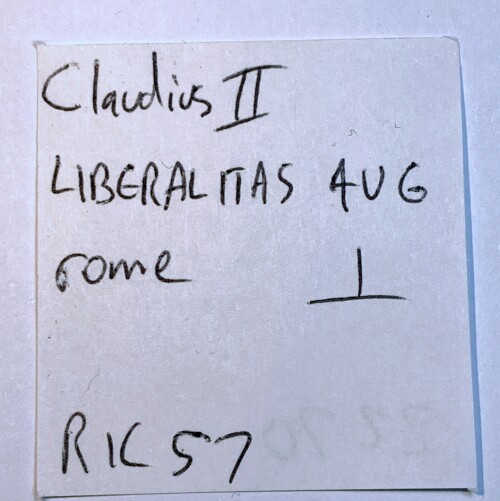 Claudius II
LIBERALITAS AUG
rome ⊥
RIC 57